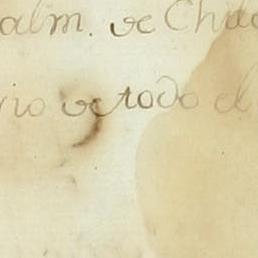 alm. de Chile
rio de todo el